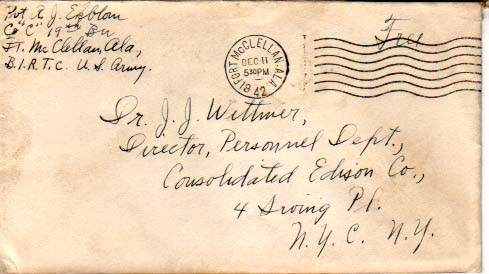 Pvt A. J. Egblom
Co "C" 19th Bn
Ft. McClellan, Ala,
B.I.R.T.C. U.S. Army.
FORT McCLELLAN, ALA.
DEC 11
5 30 PM
42
Free
Dr. J. J. Wittmer,
Director, Personnel Dept.,
Consolidated Edison Co.,
4 Irving Pl.
N.Y.C. N.Y.